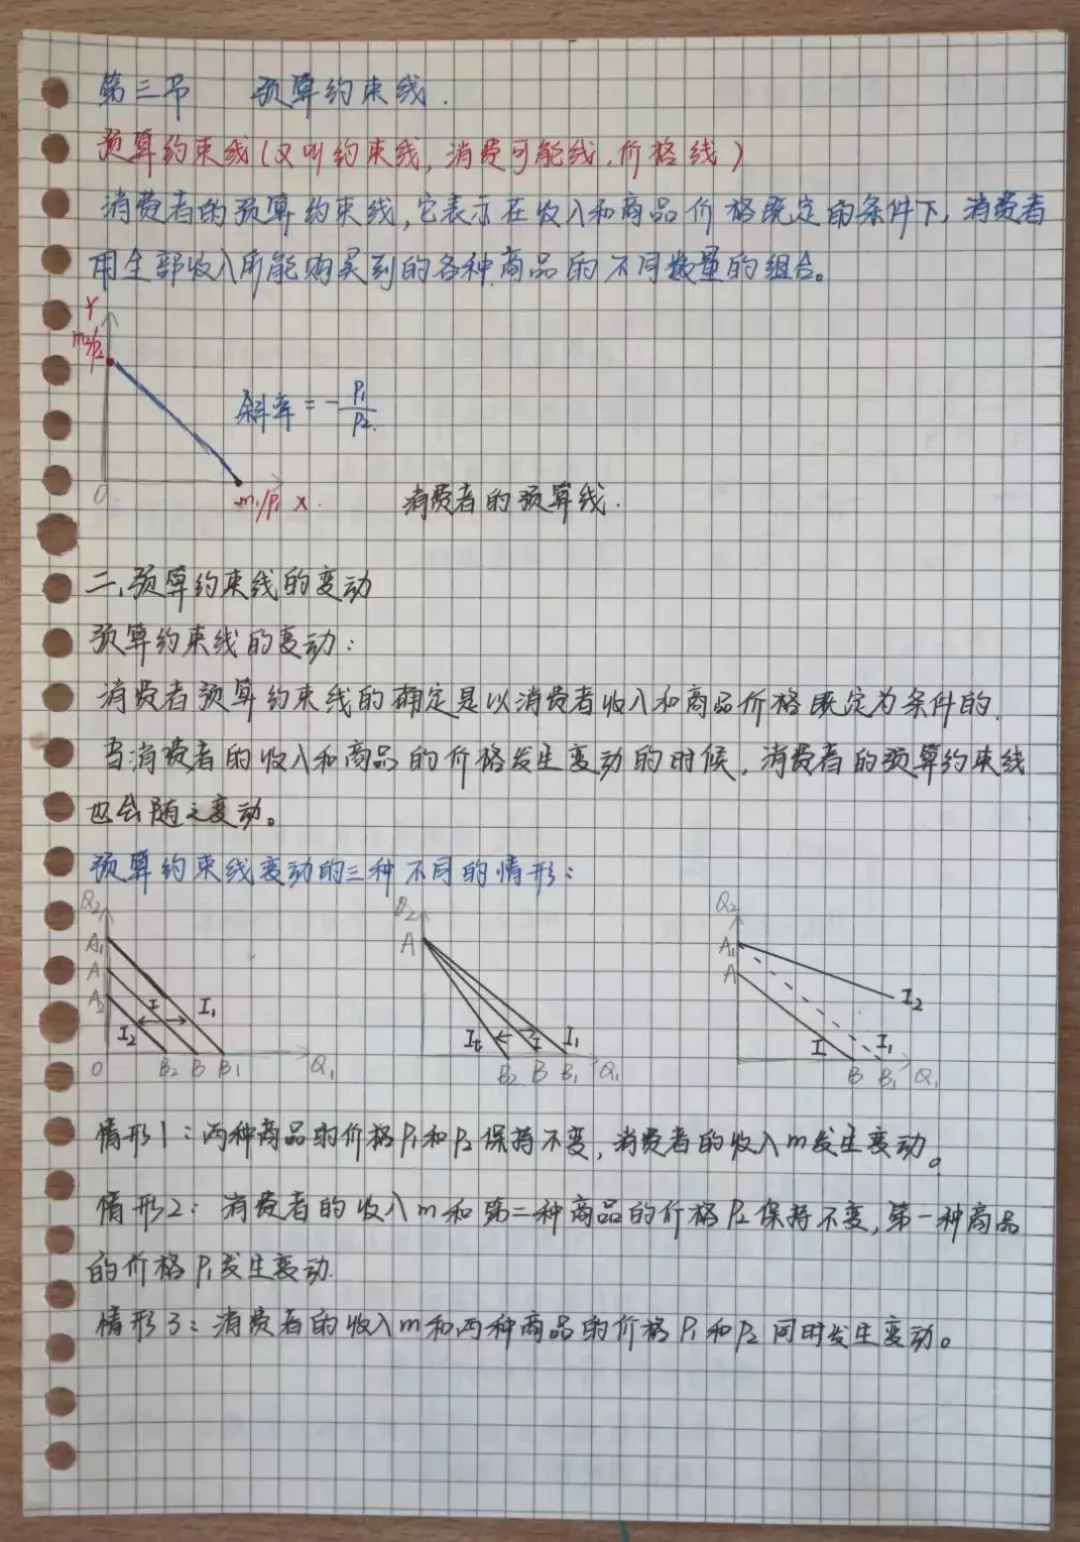 第三节 预算约束线.
预算约束线(又叫约束线,消费可能线,价格线)
消费者的预算约束线,它表示在收入和商品价格既定的条件下,消费者
用全部收入所能购买到的各种商品的不同数量的组合。
Y
m₂/p₂
斜率=-P₁/P₂.
O m₁/p₁ X.
消费者的预算线.
二、预算约束线的变动
预算约束线的变动:
消费者预算约束线的确定是以消费者收入和商品价格既定为条件的.
当消费者的收入和商品的价格发生变动的时候,消费者的预算约束线
也会随之变动。
预算约束线变动的三种不同的情形:
Q₂
A₁
A
A₂
I₂ I I₁
O B₂ B B₁ Q₁
Q₂
A
I₂ I I₁
B₂ B B₁ Q₁
Q₂
A₁
A
I₂
I I₁
B B₁ Q₁
情形1:两种商品的价格P₁和P₂保持不变,消费者的收入m发生变动。
情形2:消费者的收入m和第二种商品的价格P₂保持不变,第一种商品
的价格P₁发生变动.
情形3:消费者的收入m和两种商品的价格P₁和P₂同时发生变动。